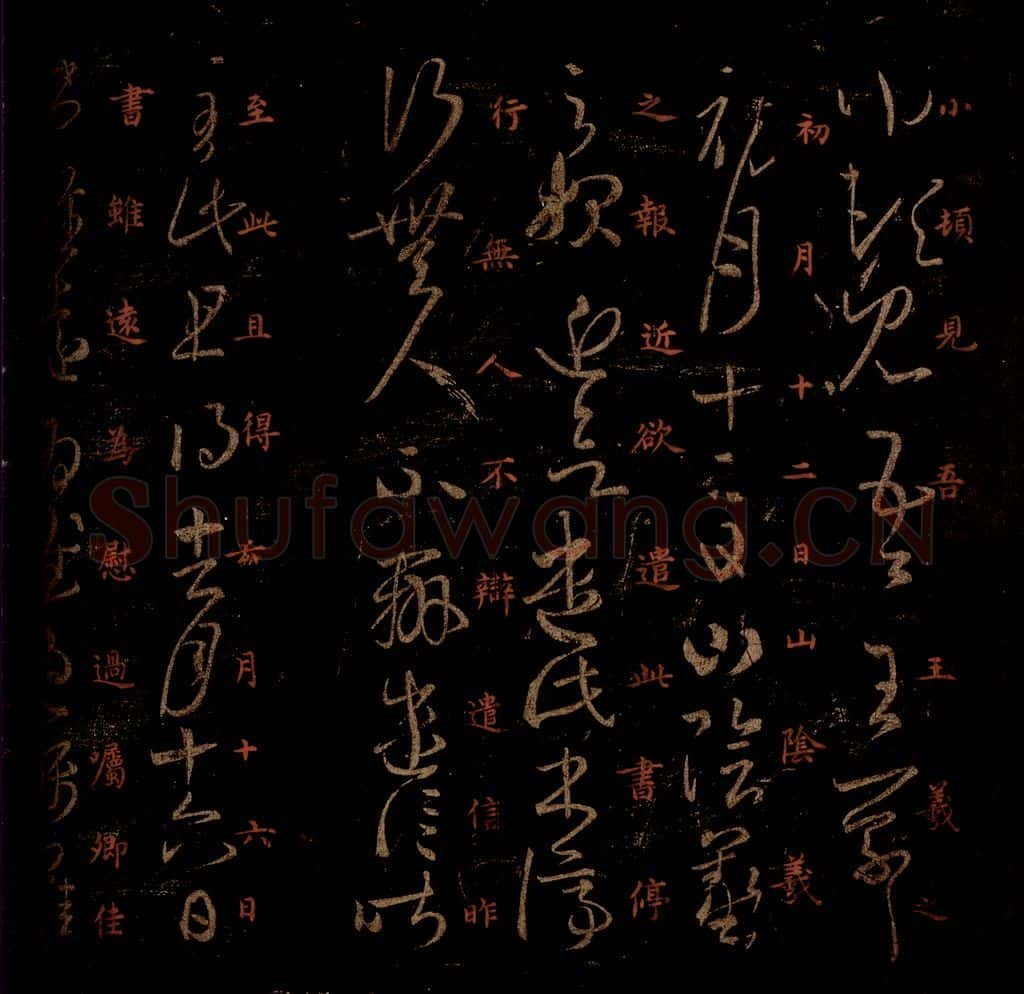 小頓見吾王羲之
初月十二日山陰羲
之報近欲遣此書停
行無人不辯遣信昨
至此且得亥月十六日
書雖遠為慰過囑卿佳
Shufawang.CN